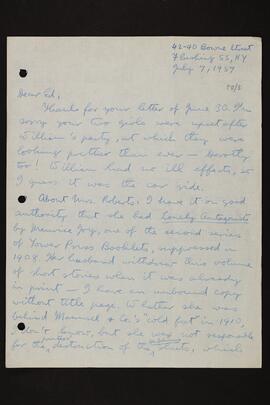 42-40 Bowne Street
Flushing 55, NY
July 7, 1957
Dear Ed,
Thanks for your letter of June 30. I'm
sorry your two girls were upset after
William's party, at which they were
looking prettier than ever — Dorothy
too! William had no ill effects, so
I guess it was the car ride.
About Mrs. Roberts: I have it on good
authority that she had Lonely Antagonists
by Maurice Joy, one of the second series
of Tower Press Booklets, suppressed in
1908. Her husband withdrew this volume
of short stories when it was already
in print — I have an unbound copy
without title page. Whether she was
behind Maunsel & Co.'s "cold feet" in 1910,
I don't know, but she was not responsible
for the destruction of the sheets, which